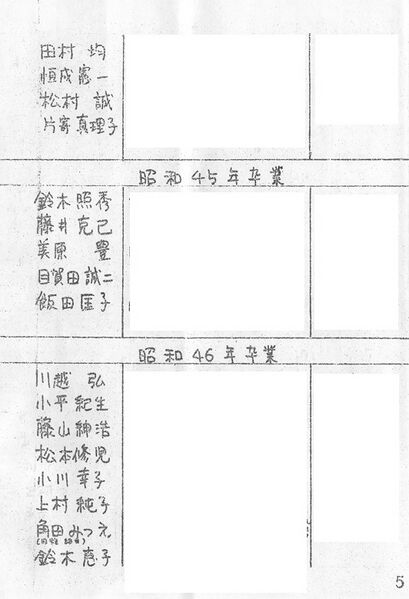 田村 均
恒成憲一
松村 誠
片寄真理子
昭和45年卒業
鈴木照秀
藤井克己
美原 豊
目賀田誠二
飯田匡子
昭和46年卒業
川越 弘
小平紀生
藤山紳浩
松本修児
小川幸子
上村純子
角田みつえ
鈴木恵子
5